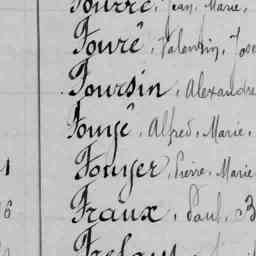 Fourré, Jean, Marie,
Fouré, Valentin, Jose
Foursin, Alexandre
Fouyé, Alfred, Marie,
1 Fouyer, Pierre, Marie
6 Fraux, Paul,